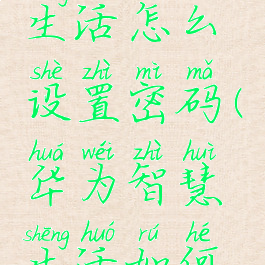 生活怎么
shè zhì mì mǎ
设置密码(
huá wéi zhì huì
华为智慧
shēng huó rú hé
生活如何